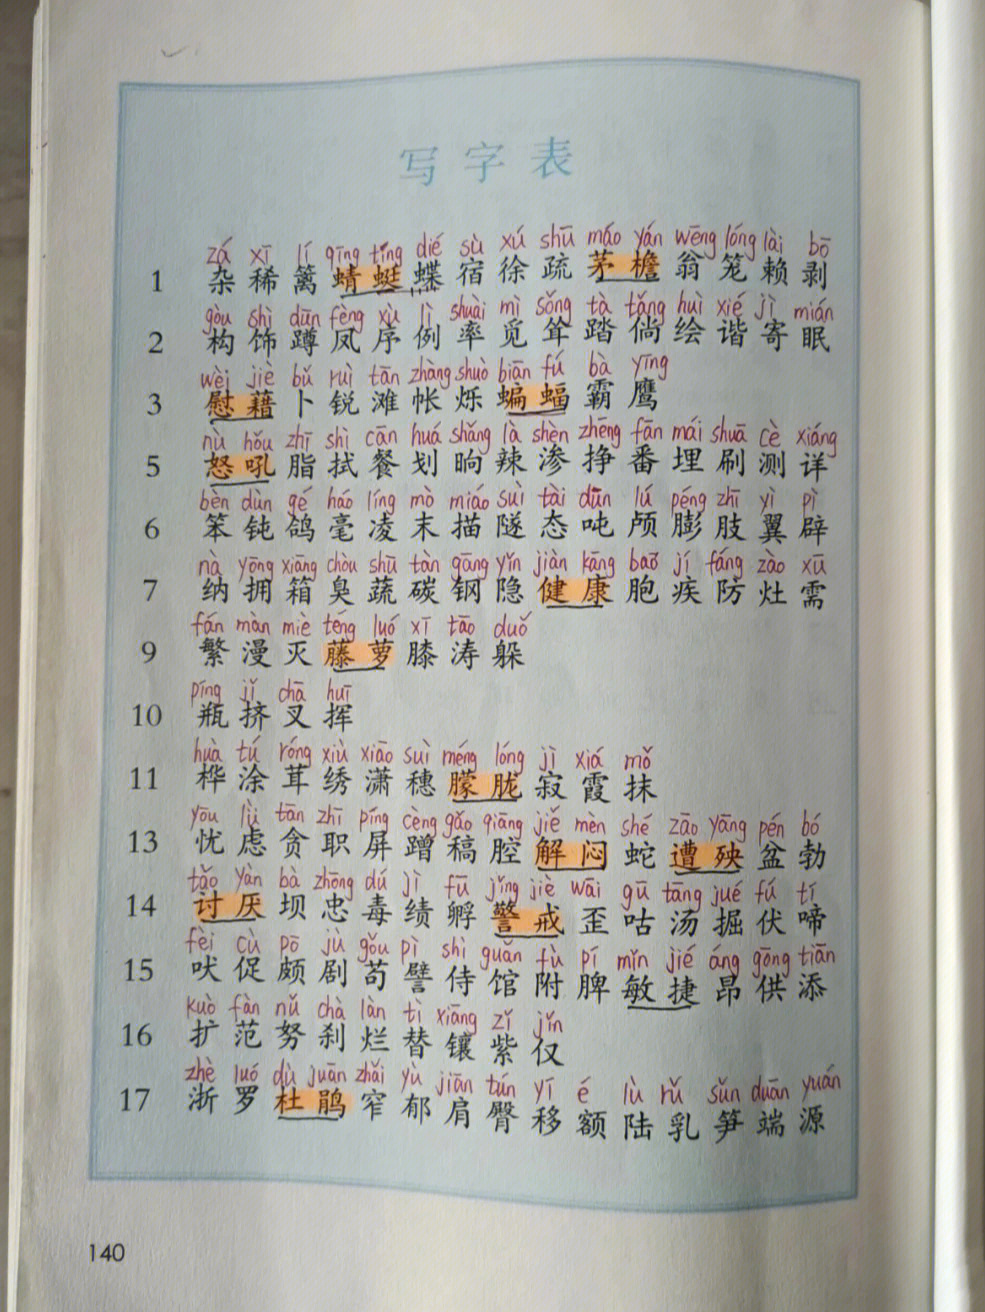 写字表
zá xī lí qīng tíng dié sù xú shū máo yán wēng lóng lài bō
1 杂 稀 篱 蜻 蜓 蝶 宿 徐 疏 茅 檐 翁 笼 赖 剥
gòu shì dūn fèng xù lì shuài mì sǒng tà tǎng huì xié jì mián
2 构 饰 蹲 凤 序 例 率 觅 耸 踏 倘 绘 谐 寄 眠
wèi jiè bǔ ruì tān zhàng shuò biān fú bà yīng
3 慰 藉 卜 锐 滩 帐 烁 蝙 蝠 霸 鹰
nù hǒu zhī shì cān huá shǎng là shèn zhēng fān mái shuā cè xiáng
5 怒 吼 脂 拭 餐 划 晌 辣 渗 挣 番 埋 刷 测 详
bèn dùn gē háo líng mò miáo suì tài dūn lú péng zhī yì pì
6 笨 钝 鸽 毫 凌 末 描 隧 态 吨 颅 膨 肢 翼 辟
nà yōng xiāng chòu shū tàn gāng yǐn jiàn kāng bāo jí fáng zào xū
7 纳 拥 箱 臭 蔬 碳 钢 隐 健 康 胞 疾 防 灶 需
fán màn miè téng luó xī tāo duǒ
9 繁 漫 灭 藤 萝 膝 涛 躲
píng jǐ chā huī
10 瓶 挤 叉 挥
huà tú róng xiù xiāo suì méng lóng jì xiá mǒ
11 桦 涂 茸 绣 潇 穗 朦 胧 寂 霞 抹
yōu lǜ tān zhī píng cèng gǎo qiāng jiě mèn shé zāo yāng pén bó
13 忧 虑 贪 职 屏 蹭 稿 腔 解 闷 蛇 遭 殃 盆 勃
tǎo yàn bà zhōng dú jì fū jǐng jiè wāi gū tāng jué fú tí
14 讨 厌 坝 忠 毒 绩 孵 警 戒 歪 咕 汤 掘 伏 啼
fèi cù pō jù gǒu pì shì guǎn fù pí mǐn jié áng gōng tiān
15 吠 促 颇 剧 苟 譬 侍 馆 附 脾 敏 捷 昂 供 添
kuò fàn nǔ chà làn tì xiāng zǐ jǐn
16 扩 范 努 刹 烂 替 镶 紫 仅
zhè luó dù juān zhǎi yù jiān tún yí é lù rǔ sǔn duān yuán
17 浙 罗 杜 鹃 窄 郁 肩 臀 移 额 陆 乳 笋 端 源
140